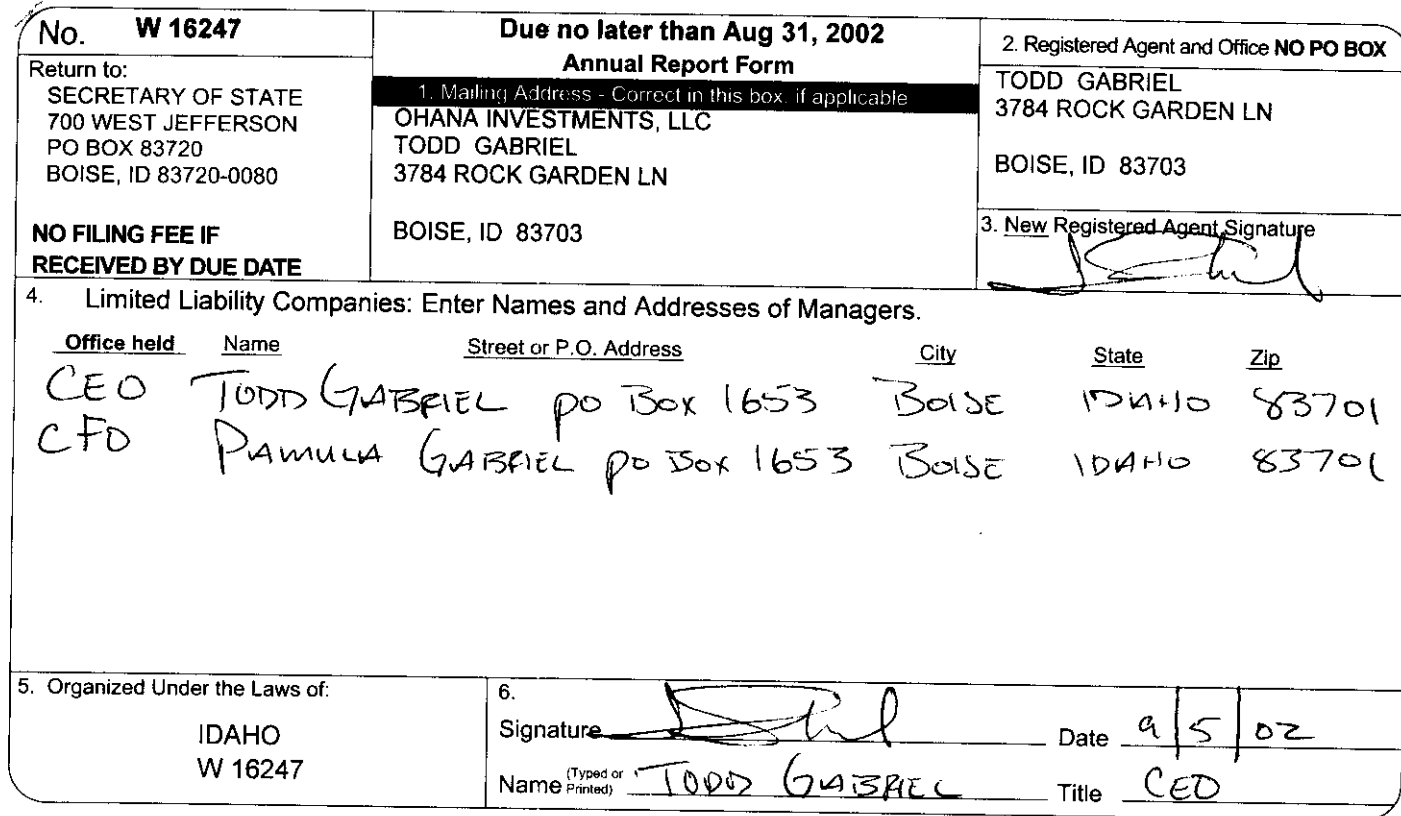 No. W 16247
Return to:
SECRETARY OF STATE
700 WEST JEFFERSON
PO BOX 83720
BOISE, ID 83720-0080
NO FILING FEE IF
RECEIVED BY DUE DATE
Due no later than Aug 31, 2002
Annual Report Form
1. Mailing Address - Correct in this box, if applicable
OHANA INVESTMENTS, LLC
TODD GABRIEL
3784 ROCK GARDEN LN
BOISE, ID 83703
2. Registered Agent and Office NO PO BOX
TODD GABRIEL
3784 ROCK GARDEN LN
BOISE, ID 83703
3. New Registered Agent Signature
4. Limited Liability Companies: Enter Names and Addresses of Managers.
Office held Name Street or P.O. Address City State Zip
CEO TODD GABRIEL PO BOX 1653 BOISE IDAHO 83701
CFO PAMULA GABRIEL PO BOX 1653 BOISE IDAHO 83701
5. Organized Under the Laws of:
IDAHO
W 16247
6.
Signature Date 9/5/02
Name (Typed or Printed) TODD GABRIEL Title CEO